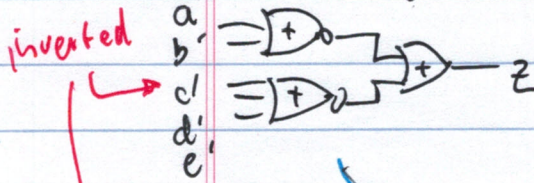 inverted
a
b'
c'
d'
e'
+
+
+
z